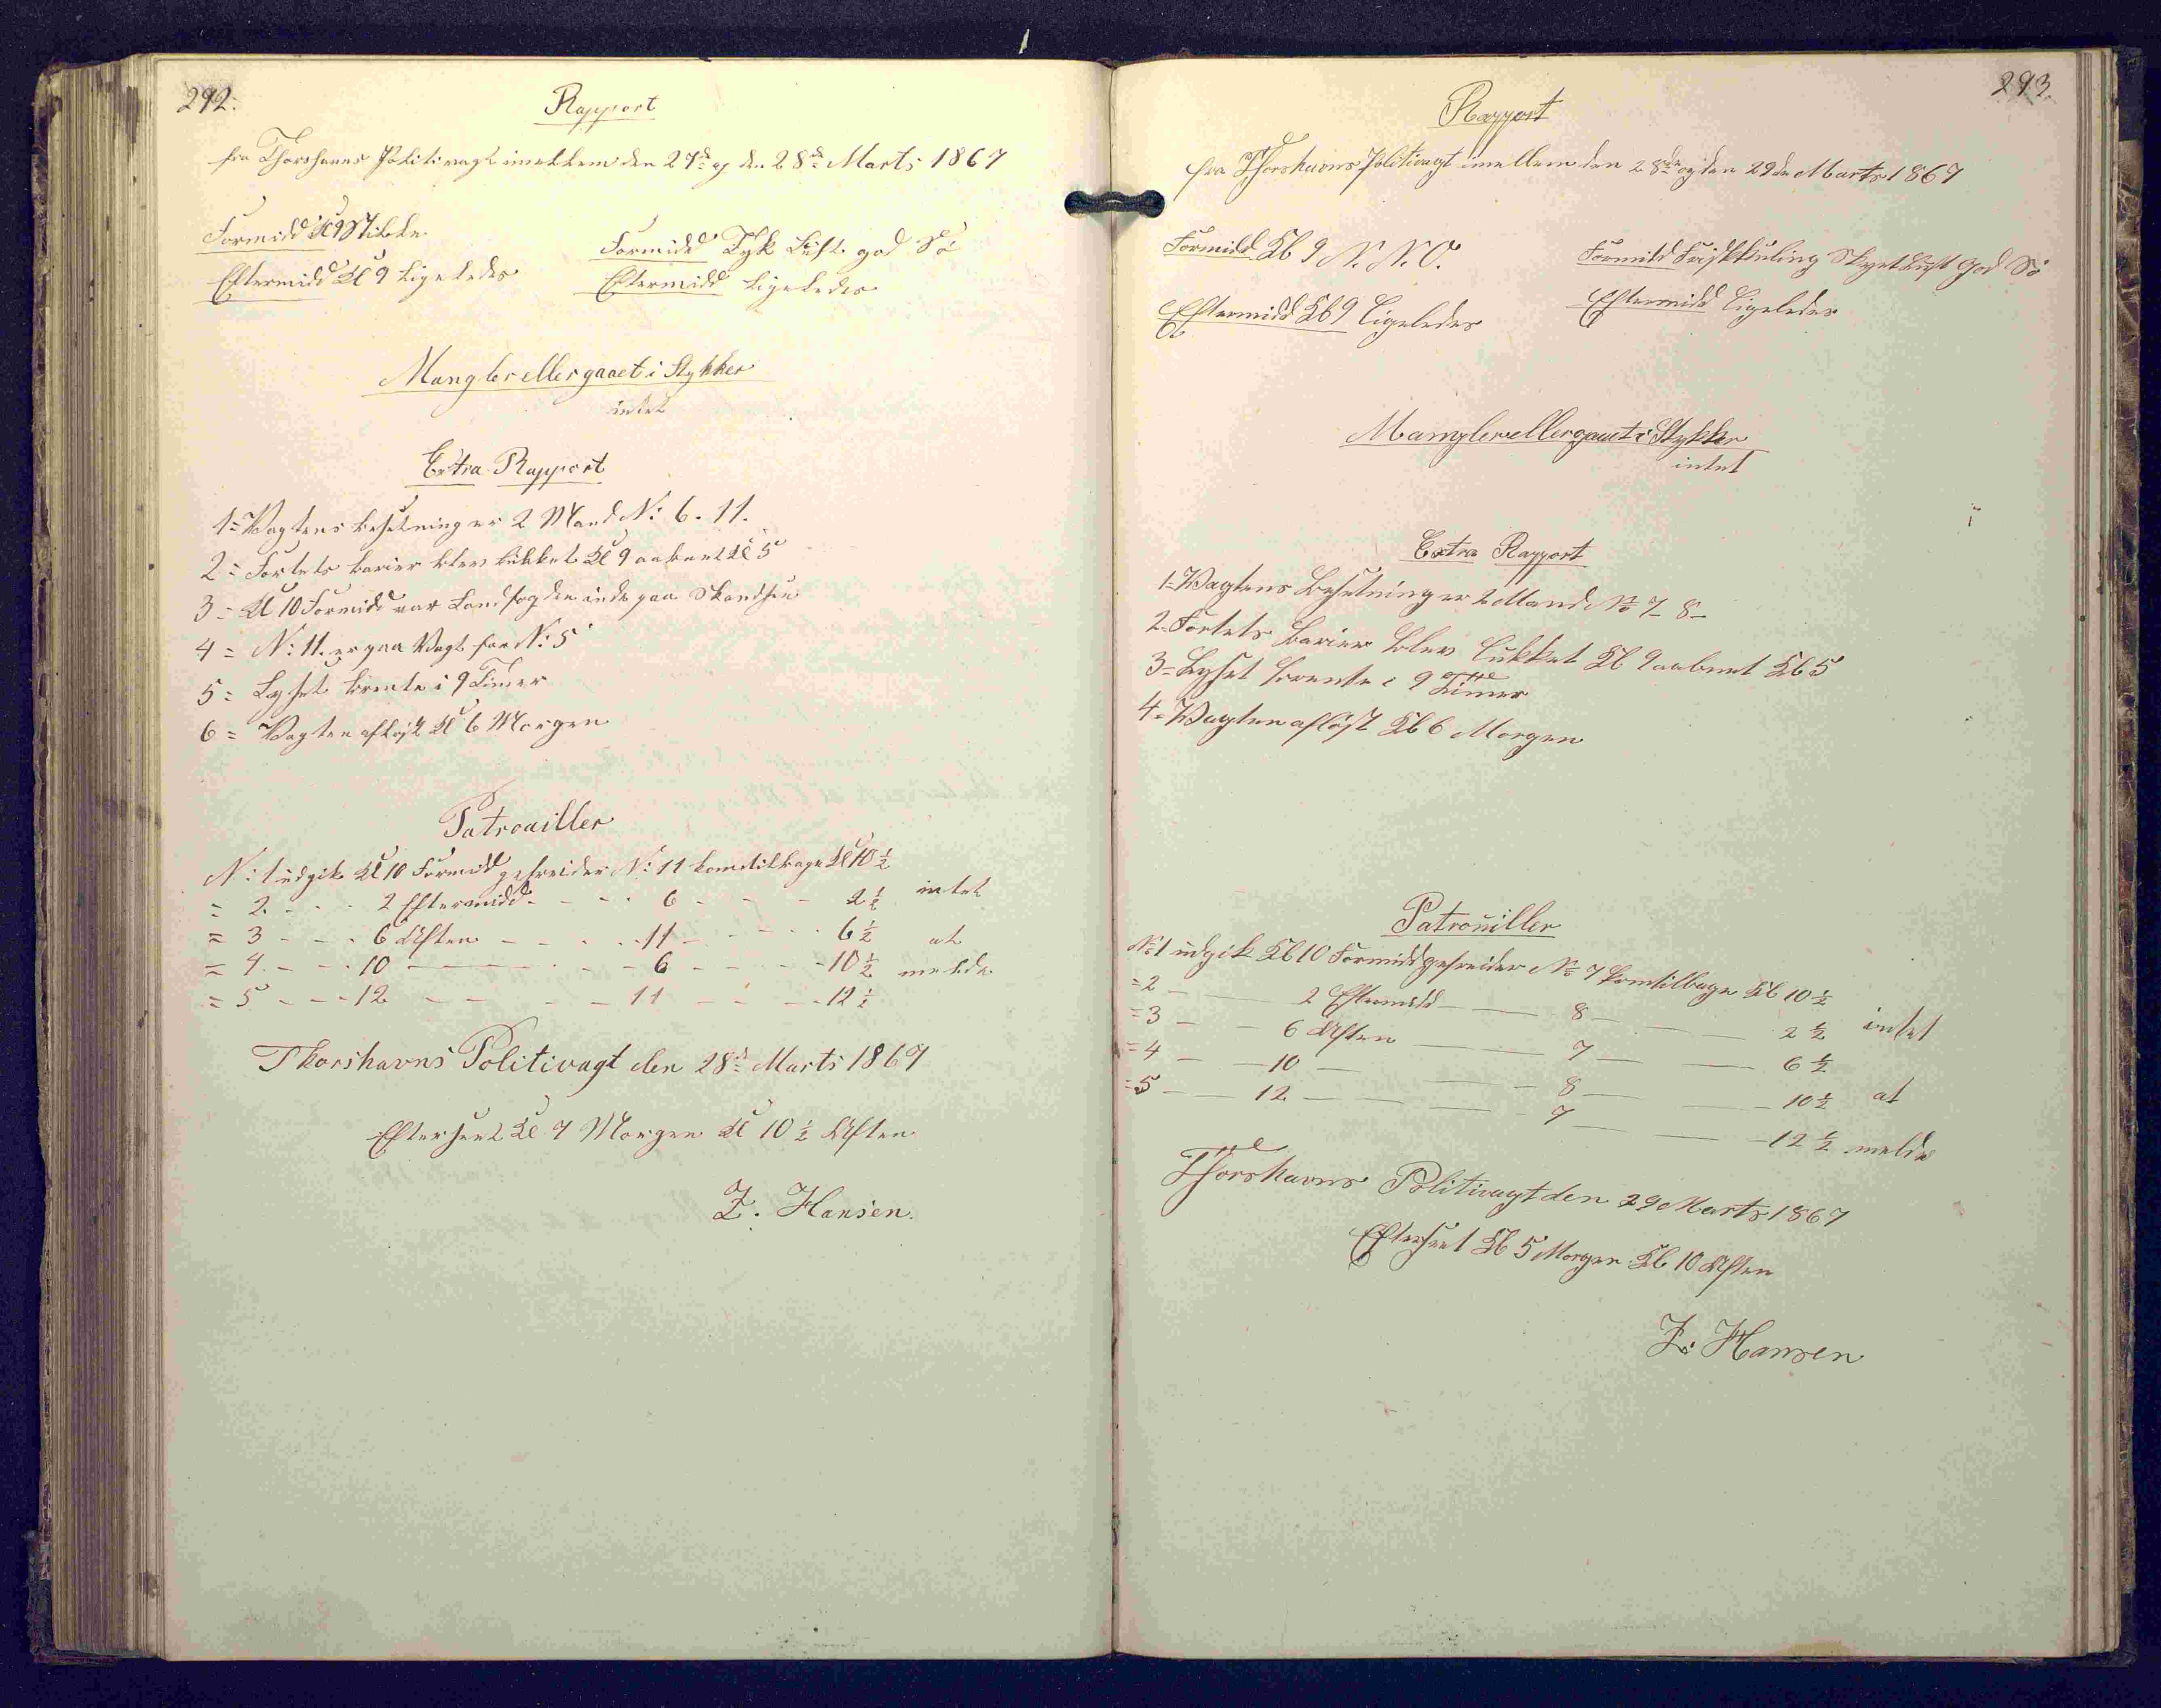 292.
Rapport
fra Thorshavns Politivagt imellem den 27de og den 28de Marts 1867
Formidd Kl 9 Stille
Formidd Tyk Luft god Sö
Eftermidd Kl 9 Ligeledes
Eftermidd Ligeledes
Mangler eller gaaet i Stykker
intet
Extra Rapport
1= Vagtens besetning er 2 Mand N: 6. 11.
2= Fortets barier blev lukket Kl 9 aabnet Kl 5
3= Kl 10 Formidd var Landfogden inde paa Skandsen
4= N: 11. er paa Vagt for N: 5
5= Lyset brente i 9 Timer
6= Vagten aflöst Kl 6 Morgen
Patrouiller
N: 1 udgik Kl 10 Formidd gefreider N: 11 kom tilbage Kl 10 ½
= 2. - - - 2 Eftermidd - - - - 6 - - - 2 ½ intet
= 3 - - - 6 Aften - - - - 11 - - - - 6 ½ at
= 4. - - - 10 - - - - 6 - - - - 10 ½ melde
= 5 - - - 12 - - - - 11 - - - - 12 ½
Thorshavns Politivagt den 28de Marts 1867
Efterseet Kl 7 Morgen Kl 10 ½ Aften
Z. Hansen.
293.
Rapport
fra Thorshavns Politivagt imellem den 28de og den 29de Marts 1867
Formidd Kl 9 N. N. O.
Formidd Friskkuling Skyet Luft God Sö
Eftermidd Kl 9 Ligeledes
Eftermidd Ligeledes
Mangler eller gaaet i Stykker
intet
Extra Rapport
1= Vagtens Besetning er 2 Mand No 7- 8-
2= Fortets Barier blev lukket Kl 9 aabnet Kl 5
3= Lyset brente i 9 Timer
4= Vagten aflöst Kl 6 Morgen
Patrouiller
No 1 udgik Kl 10 Formidd gefreider No 7 kom tilbage Kl 10 ½
= 2 - - 2 Eftermidd - - 8 - - 2 ½ intet
= 3 - - 6 Aften - - 7 - - 6 ½
= 4 - - 10 - - 8 - - 10 ½ at
= 5 - - 12 - - 7 - - 12 ½ melde
Thorshavns Politivagt den 29 Marts 1867
Efterseet Kl 5 Morgen Kl 10 Aften
Z. Hansen